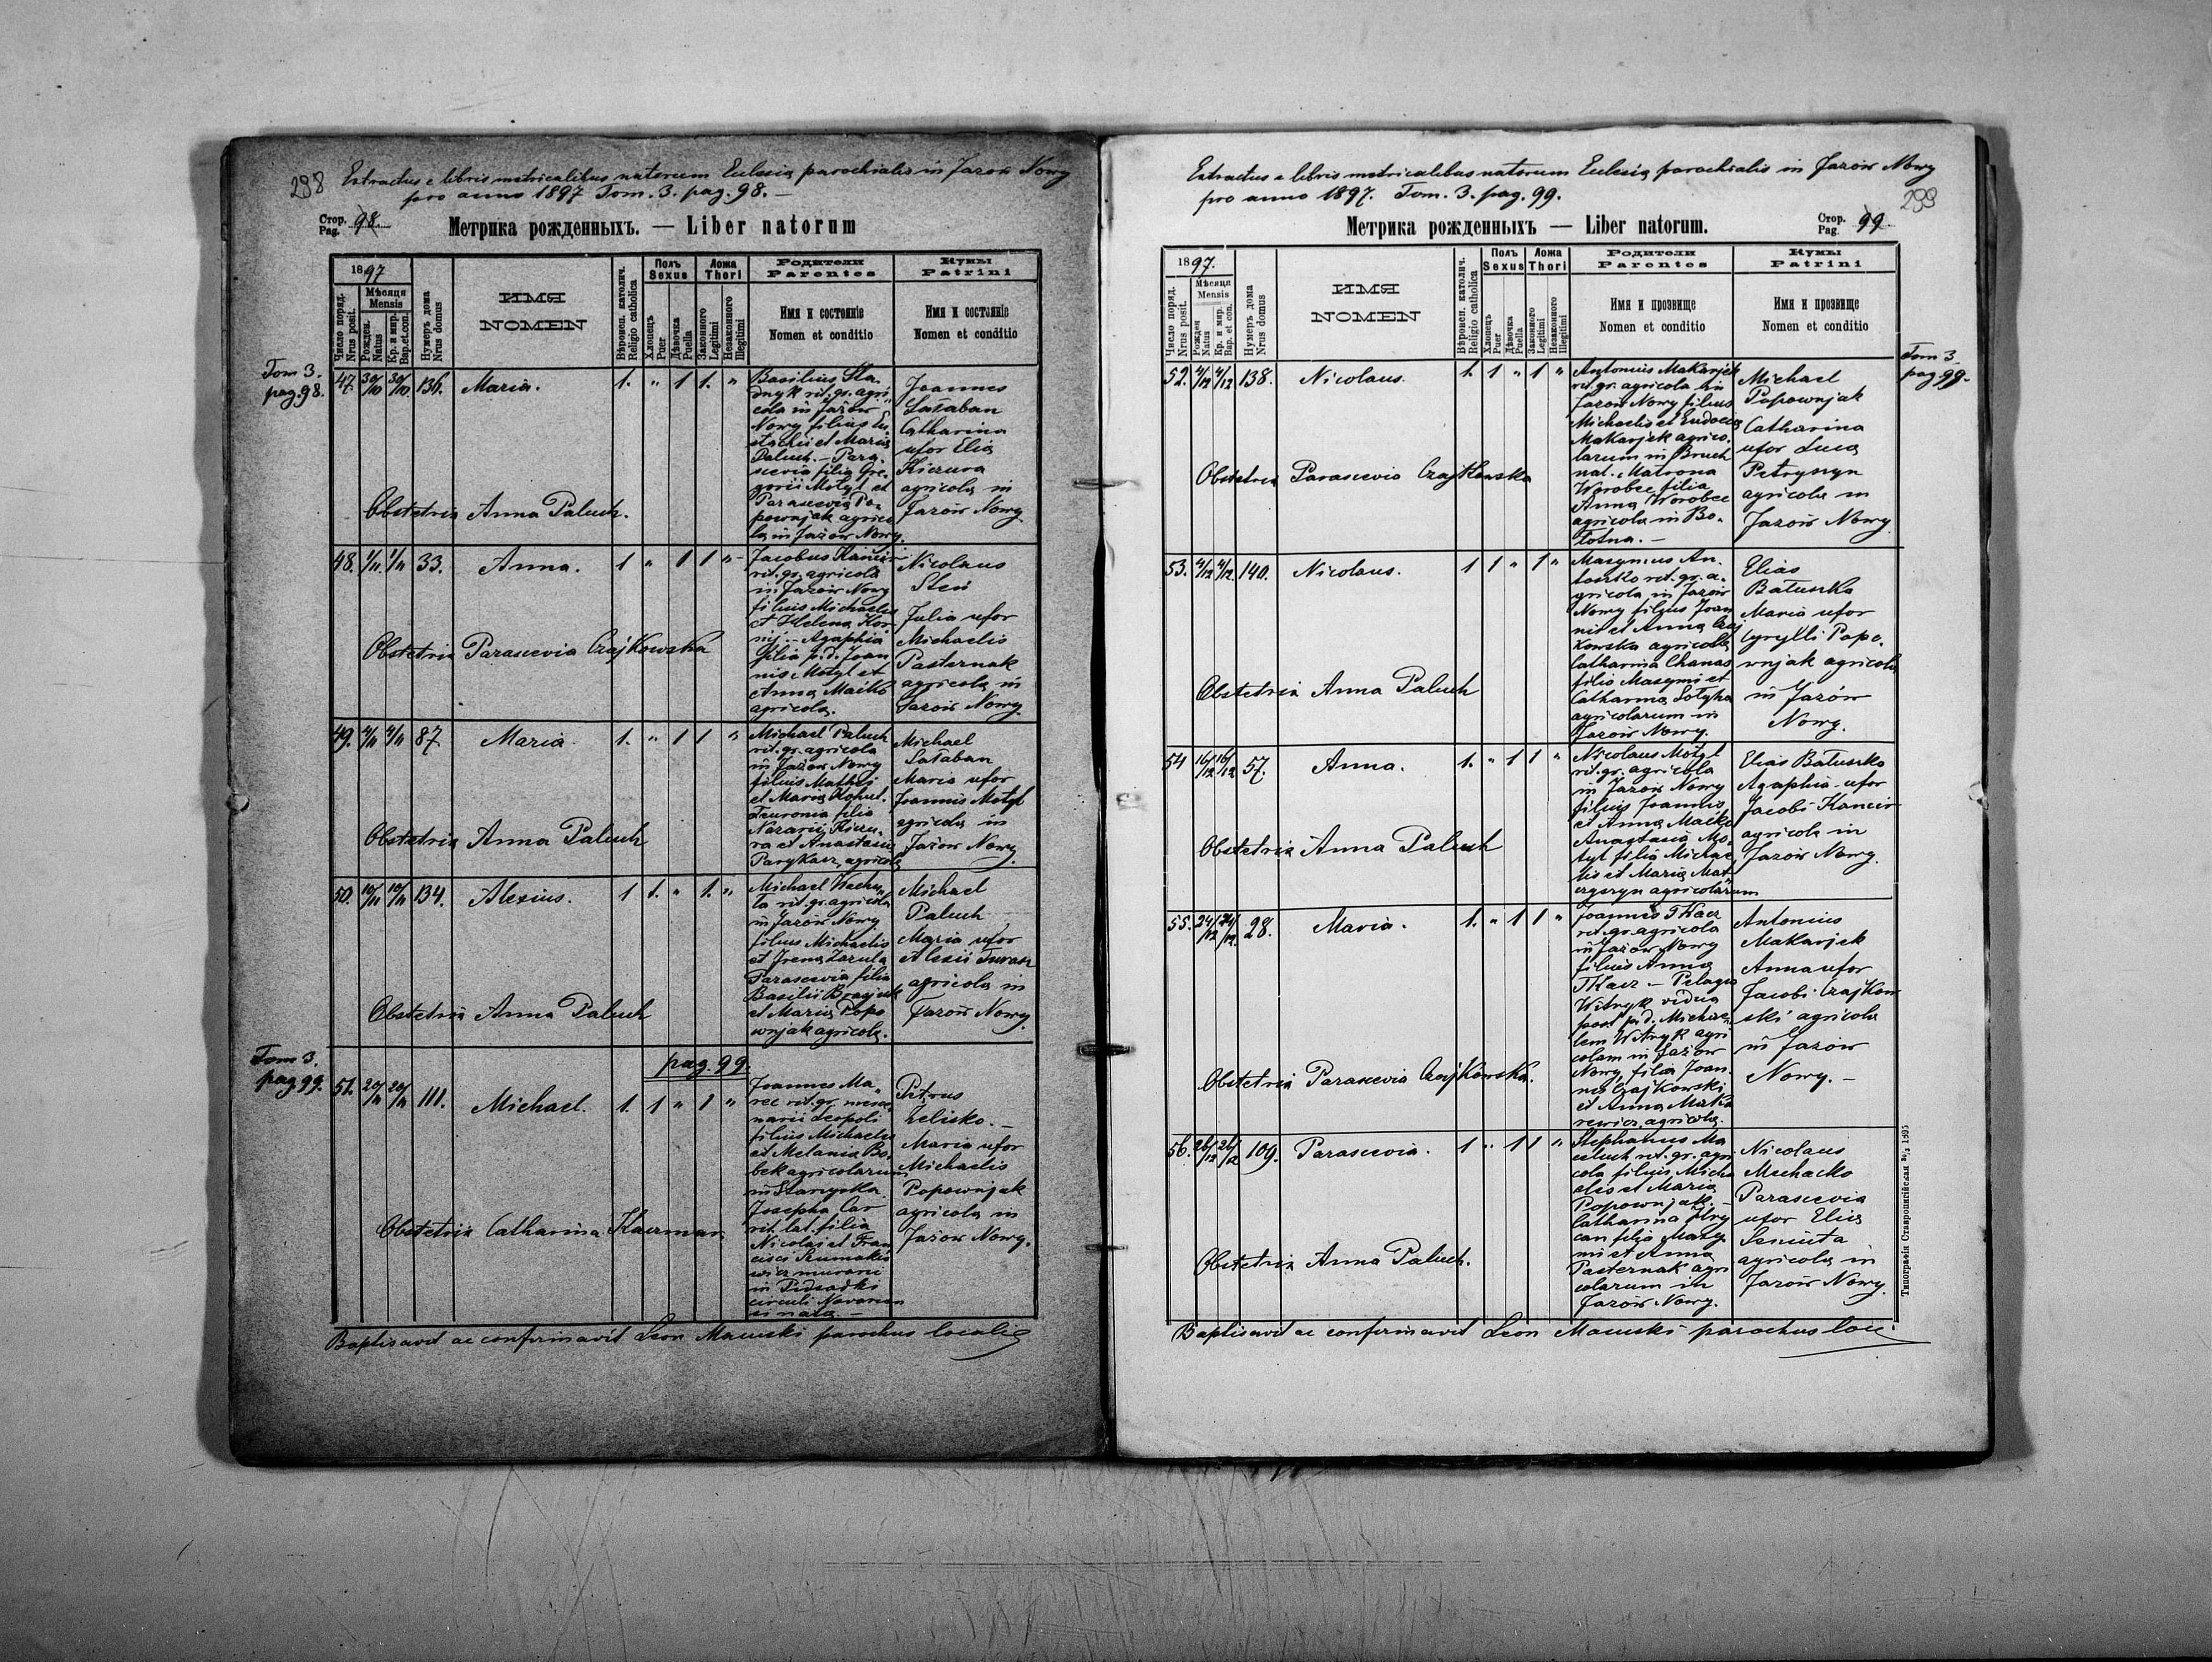 298
Extractus e libris metricalibus natorum Eclesiæ parochialis in Jazow Nowy
pro anno 1897 Tom. 3. pag. 98. —
Стор.
Pag. 98.
Метрика рожденныхъ. — Liber natorum
1897
Число поряд.
Nrus posit.
Мѣсяця
Mensis
Рожден.
Natus
Кр. и мир.
Bap. et con.
Нумеръ дома
Nrus domus
ИМЯ
NOMEN
Вѣроисп. католич.
Religio catholica
Полъ
Sexus
Хлопецъ
Puer
Дѣвочка
Puella
Ложа
Thori
Законного
Legitimi
Незаконного
Illegitimi
Родители
Parentes
Имя и состоянiе
Nomen et conditio
Кумы
Patrini
Имя и состоянiе
Nomen et conditio
Tom 3.
pag. 98.
47. 30/10 30/10 136. Maria. 1. " 1 1. "
Basilius Sla-
dnyk rit. gr. agri
cola in Jazow
Nowy filius Eu
stachii et Maria
Paluch. — Para-
scevia filia Gre-
gorii Motyl et
Parascevia Po-
pownjak agrico
la in Jazow Nowy.
Joannes
Łałaban
Catharina
uxor Elia
Kiczura
agricola in
Jazow Nowy.
Obstetrix Anna Paluch.
48. 1/11 1/11 33. Anna. 1 " 1 1 "
Jacobus Kancir
rit. gr. agricola
in Jazow Nowy
filius Michaelis
et Helena Kor
nij. — Agaphia
filia p.d. Joan
nis Motyl et
Anna Maćko
agricola.
Nicolaus
Sten
Julia uxor
Michaelis
Pasternak
agricola in
Jazow Nowy.
Obstetrix Parascevia Czajkowska
49. 4/11 4/11 87. Maria. 1. " 1 1 "
Michael Paluch
rit. gr. agricola
in Jazow Nowy
filius Mathei
et Maria Kohut.
Feuronia filia
Nazarii Kiczu-
ra et Anastasia
Parykasz, agricola
Michael
Łałaban
Maria uxor
Joannis Motyl
agricola in
Jazow Nowy.
Obstetrix Anna Paluch
50. 10/11 10/11 134. Alexius. 1 1. " 1. "
Michael Wachu
ta rit. gr. agricola
in Jazow Nowy.
filius Michaelis
et Irena Zazula
Parascevia filia
Basilii
et Maria Popo
wnjak agricola.
Michael
Paluch
Maria uxor
Alexii
agricola in
Jazow Nowy.
Obstetrix Anna Paluch
Tom 3.
pag 99.
pag. 99.
51. 20/11 20/11 111. Michael. 1. 1 " 1 "
Joannes Ma-
rec rit. gr.
narii Leopoli
filius Michaelis
et Melania Bo-
bek agricolarum
in Starzyska.
Josepha Car
rit. lat. filia
Nicolai et Fran
cisci
wicz murarii
in
circuli
nata —
Petrus
Zelisko. —
Maria uxor
Michaelis
Popownjak
agricola in
Jazow Nowy.
Obstetrix Catharina Kaczmar.
Baptisavit ac confirmavit Leon Macuski parochus localis
Extractus e libris metricalibus natorum Eclesiæ parochialis in Jazow Nowy
pro anno 1897. Tom. 3. pag. 99.
299
Метрика рожденныхъ — Liber natorum.
Стор.
Pag. 99.
1897.
Число поряд.
Nrus posit.
Мѣсяця
Mensis
Рожден
Natus
Кр. и мир.
Bap. et con.
Нумеръ дома
Nrus domus
ИМЯ
NOMEN
Вѣроисп. католич.
Religio catholica
Полъ
Sexus
Хлопецъ
Puer
Дѣвочка
Puella
Ложа
Thori
Законного
Legitimi
Незаконного
Illegitimi
Родители
Parentes
Имя и прозвище
Nomen et conditio
Кумы
Patrini
Имя и прозвище
Nomen et conditio
Tom 3.
pag. 99.
52. 4/12 4/12 138. Nicolaus. 1. 1 " 1 "
Antonius Makarjek
rit. gr. agricola in
Jazow Nowy filius
Michaelis et Eudocia
Makarjek agrico-
larum in Bruch
nat. Matrona
Worobec filia
Anna Worobec
agricola in Bo-
lotna. —
Michael
Popownjak
Catharina
uxor Luca
Petryszyn
agricola in
Jazow Nowy
Obstetrix Parascevia Czajkowska
53. 4/12 4/12 140. Nicolaus. 1 1 " 1 "
Maxymus An-
toszko rit. gr. a-
gricola in Jazow
Nowy filius Joan
nis et Anna Czaj
kowska agricola
Catharina Chanas
filia Maxymi et
Catharina Sołyha
agricolarum in
Jazow Nowy.
Elias
Batuszko
Maria uxor
Cyrylli Popo-
wnjak agricola
in Jazow
Nowy.
Obstetrix Anna Paluch
54 16/12 16/12 57. Anna. 1. " 1 1 "
Nicolaus Motyl
rit. gr. agricola
in Jazow Nowy
filius Joannis
et Anna Maćko
Anastasia Mo-
tyl filia Michae
lis et Maria Mat
agricolarum
Elias Batuszko
Agaphia uxor
Jacobi Kancir
agricola in
Jazow Nowy.
Obstetrix Anna Paluch
55. 24/12 24/12 28. Maria. 1. " 1 1 "
Joannes Tkacz
rit. gr. agricola
in Jazow Nowy
filius Anna
Tkacz — Pelagia
Witnyk vidua
post p.d. Michae
lem Witnyk agri
colam in Jazow
Nowy, filia Joan-
nis Czajkowski
et Anna Marka
rewicz, agricola.
Antonius
Makarjek
Anna uxor
Jacobi Czajkow
ski agricola
in Jazow
Nowy. —
Obstetrix Parascevia Czajkowska.
56. 26/12 26/12 109. Parascevia. 1 " 1 1 "
Stephanus Ma
celuch rit. gr. agri
cola filius Micha
elis et Maria
Popownjak, —
Catharina Hry
can filia Maxy
mi et Anna
Pasternak agri
colarum in
Jazow Nowy.
Nicolaus
Muchacko
Parascevia
uxor Elia
Senuta
agricola in
Jazow Nowy.
Obstetrix Anna Paluch.
Типографiя Ставропигiйская 1895
Baptisavit ac confirmavit Leon Macuski parochus loci